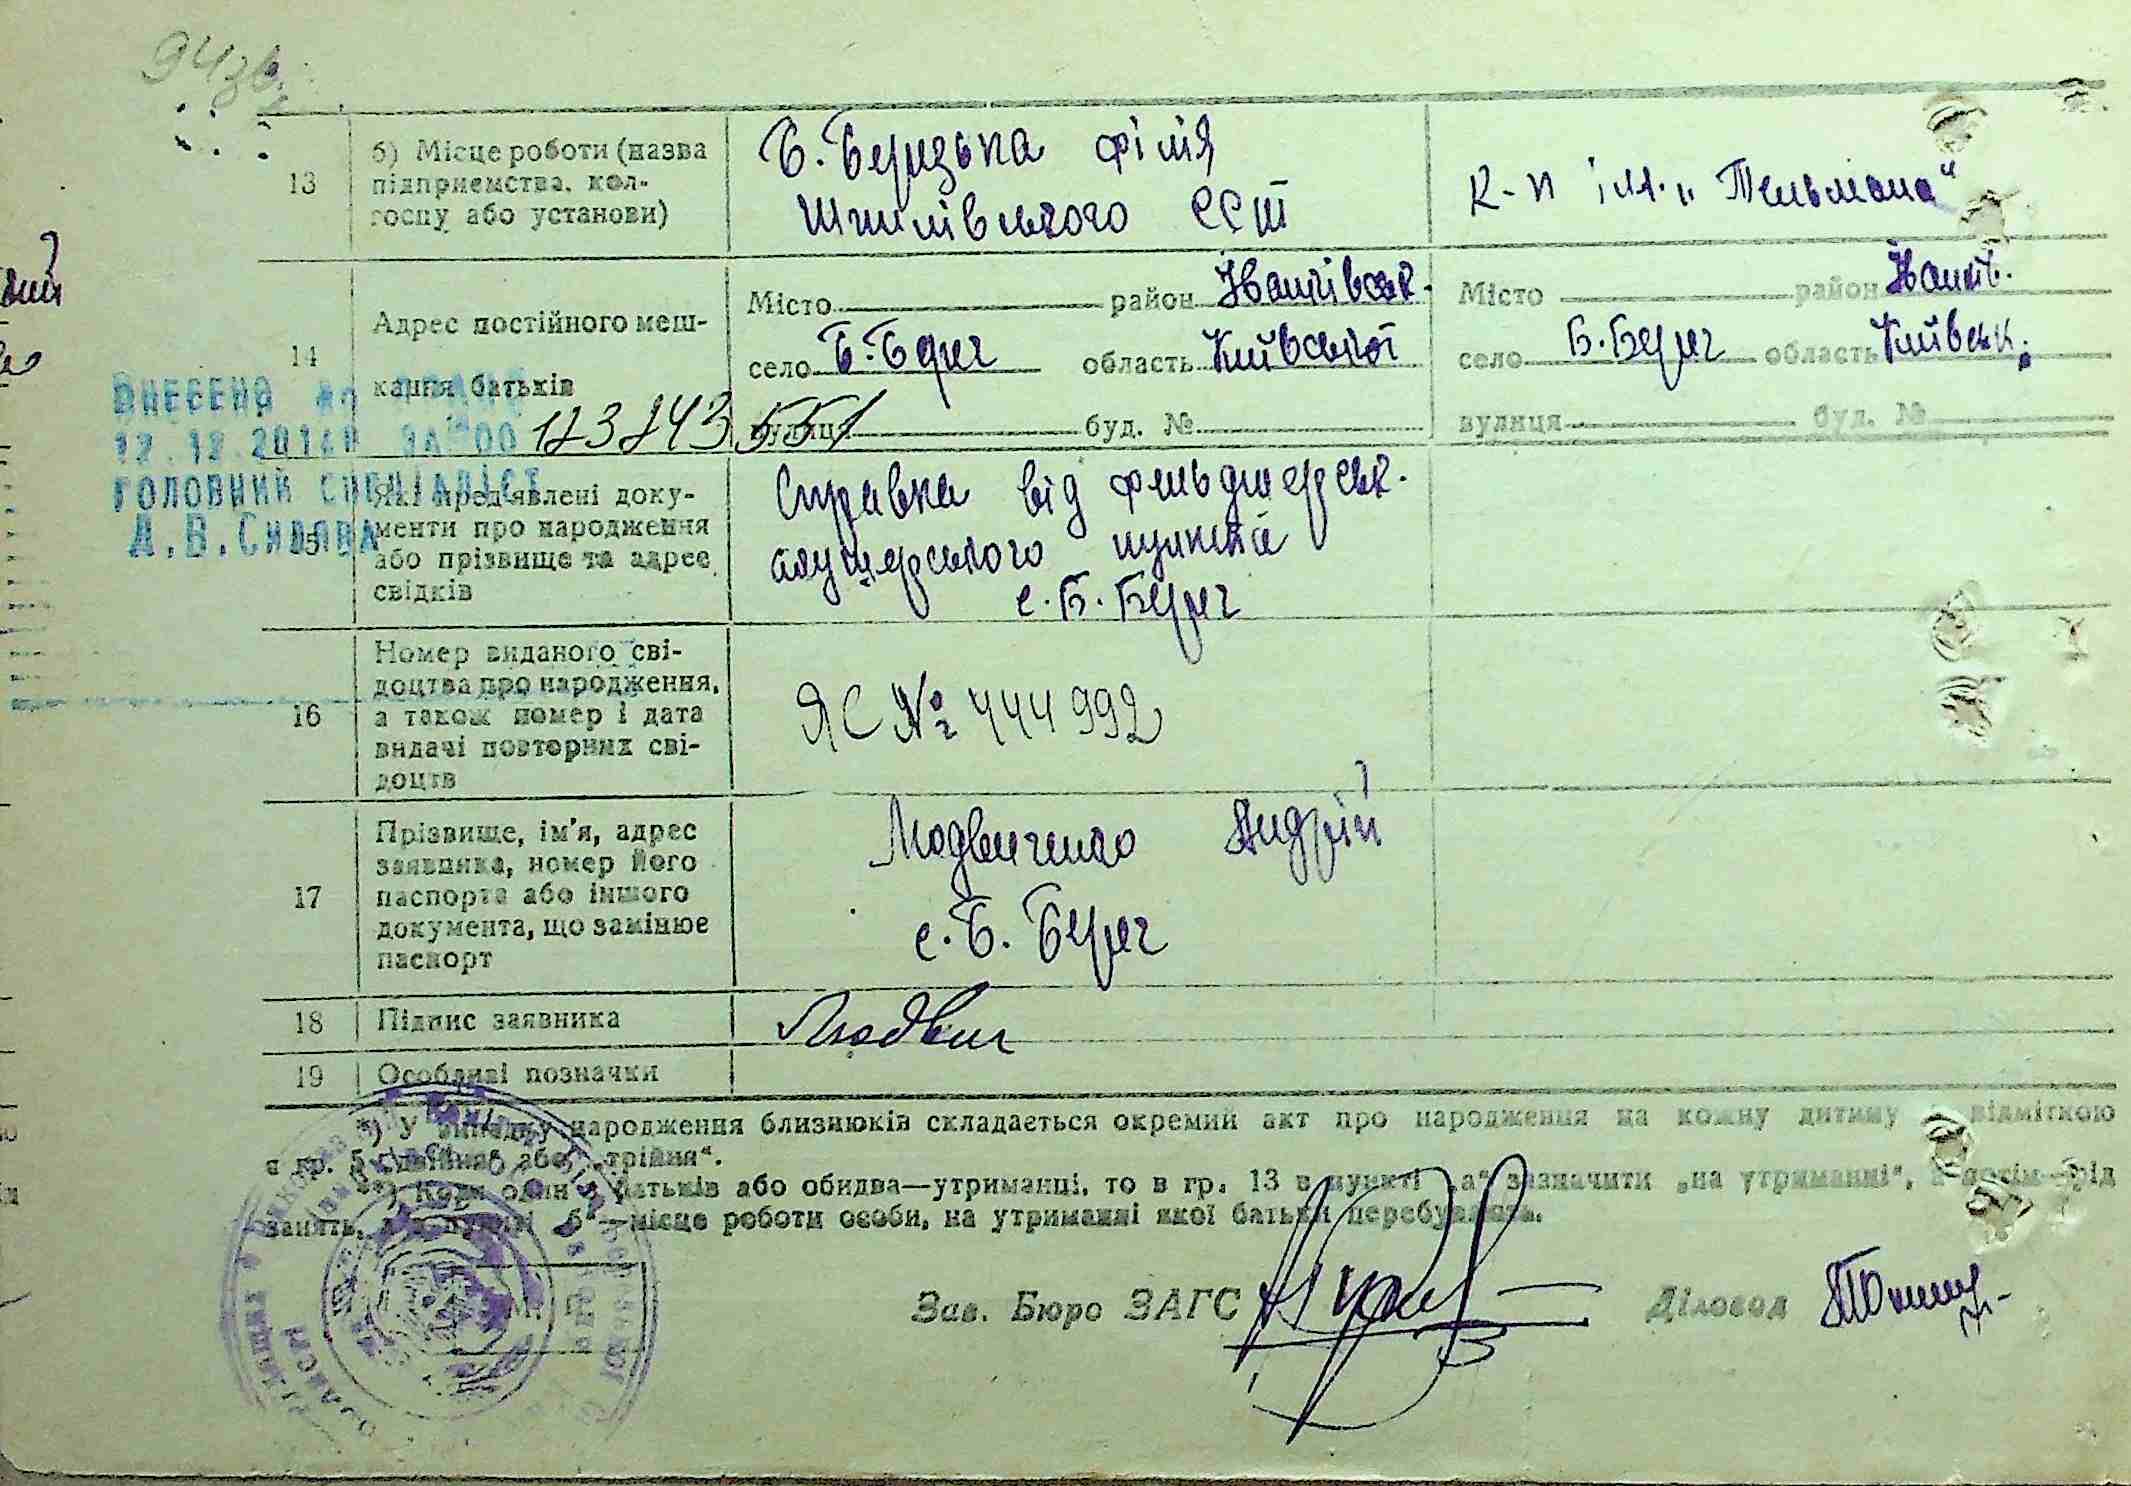 94зв.
13
б) Місце роботи (назва
підприємства, кол-
госпу або установи)
Б. Березька філія
ССТ
К-п ім. „Тельмана“
14
Адрес постійного меш-
кання батьків
Місто район Іванківськ.
село Б. Берег область Київської
вулиця буд. №
Місто район Іванків.
село Б. Берег область Київськ.
вулиця буд. №
ВНЕСЕНО
12.12.2014 ЗА № 00 123243551
ГОЛОВНИЙ СПЕЦІАЛІСТ
15
Які пред'явлені доку-
менти про народження
або прізвище та адрес
свідків
Справка від фельдшерськ.
акушерського пункта
с. Б. Берег
16
Номер виданого сві-
доцтва про народження,
а також номер і дата
видачі повторних сві-
доцтв
ЯС № 444992
17
Прізвище, ім'я, адрес
заявника, номер його
паспорта або іншого
документа, що замінює
паспорт
Андрій
с. Б. Берег
18
Підпис заявника
19
Особливі позначки
*) У випадку народження близнюків складається окремий акт про народження на кожну дитину з відміткою
в гр. 5 „двійня“ або „трійня“.
**) Коли один з батьків або обидва—утриманці, то в гр. 13 в пункті „а“ зазначити „на утриманні“, а потім—рід
занять, а в пункті „б“—місце роботи особи, на утриманні якої батьки перебувають.
М. П.
Зав. Бюро ЗАГС
Діловод